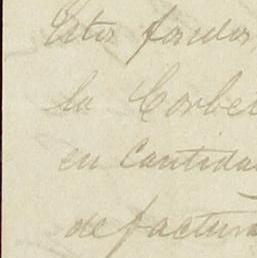 Estos fondos
la Corbet
en Cantida
de factura